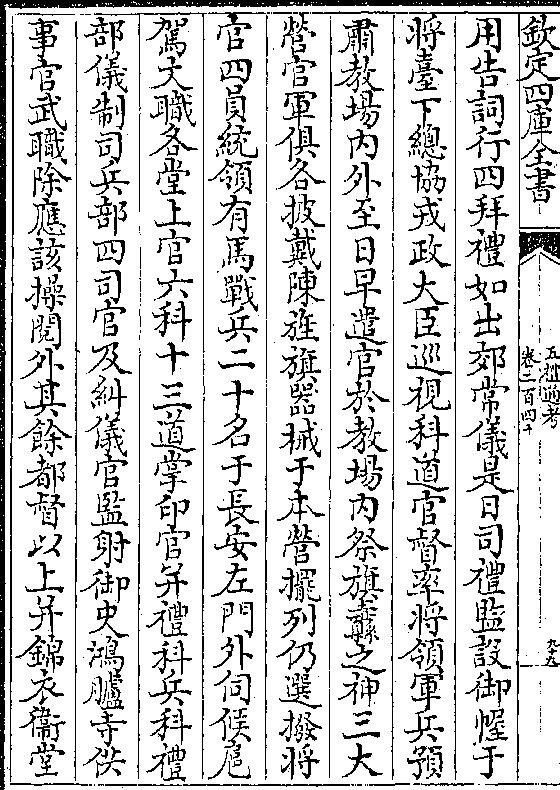 欽定四庫全書
五禮通考
卷二百四十
用告詞行四拜禮如出郊常儀是日司禮監設御幄于
將臺下總協戎政大臣巡視科道官督率將領軍兵預
肅教場内外至日早遣官於教場内祭旗纛之神三大
營官軍俱各披戴陳旌旗器械于本營擺列仍選撥將
官四員統領有馬戰兵二十名于長安左門外伺候扈
駕文職各堂上官六科十三道掌印官并禮科兵科禮
部儀制司兵部四司官及糾儀官監射御史鴻臚寺供
事官武職除應該操閱外其餘都督以上并錦衣衞堂